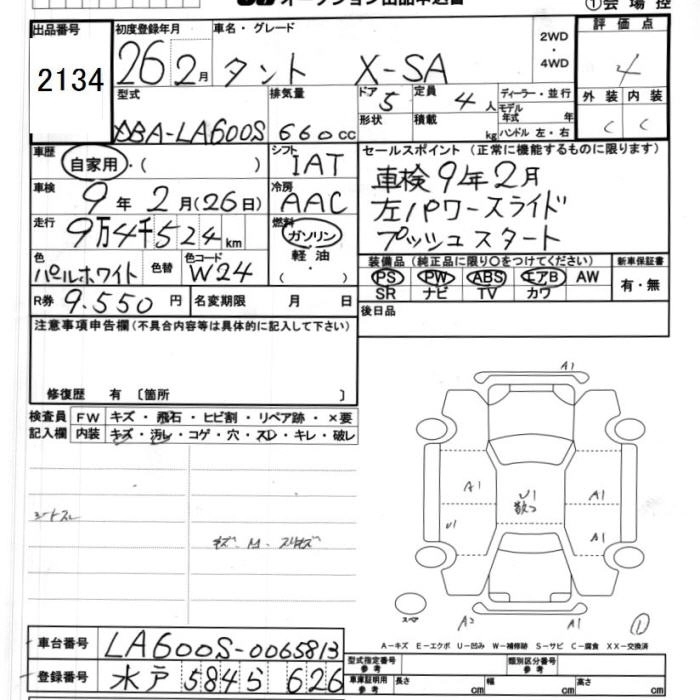 オークション出品申込書
①会場控
出品番号
2134
初度登録年月
26 2月
車名・グレード
タント X-SA
2WD・4WD
評価点
4
型式
DBA-LA600S
排気量
660cc
ドア 5
形状
定員 4人
積載 kg
ディーラー・並行
モデル年式 年
ハンドル 左・右
外装 内装
C C
車歴
自家用・( )
シフト
IAT
車検
9年2月(26日)
冷房
AAC
走行
9万4千524km
燃料
ガソリン・軽油・( )
色
パールホワイト
色替
色コード
W24
R券 9.550円
名変期限 月 日
セールスポイント (正常に機能するものに限ります)
車検9年2月
左パワースライド
プッシュスタート
装備品(純正品に限り○をつけてください)
新車保証書
PS PW ABS エアB AW
SR ナビ TV カワ
有・無
後日品
注意事項申告欄(不具合内容等は具体的に記入して下さい)
修復歴 有〔箇所 〕
検査員記入欄
FW キズ・飛石・ヒビ割・リペア跡・×要
内装 キズ・汚レ・コゲ・穴・スレ・キレ・破レ
シートスレ
キズ・M・スリキズ
A1
A1
U1
U1
A1
A1
A2
A1
①
スマ
A-キズ E-エクボ U-凹み W-補修跡 S-サビ C-腐食 XX-交換済
車台番号 LA600S-0065813
登録番号 水戸 5845 626
型式指定番号 参考
類別区分番号 参考
車庫証明用 参考 長さ cm 幅 cm 高さ cm